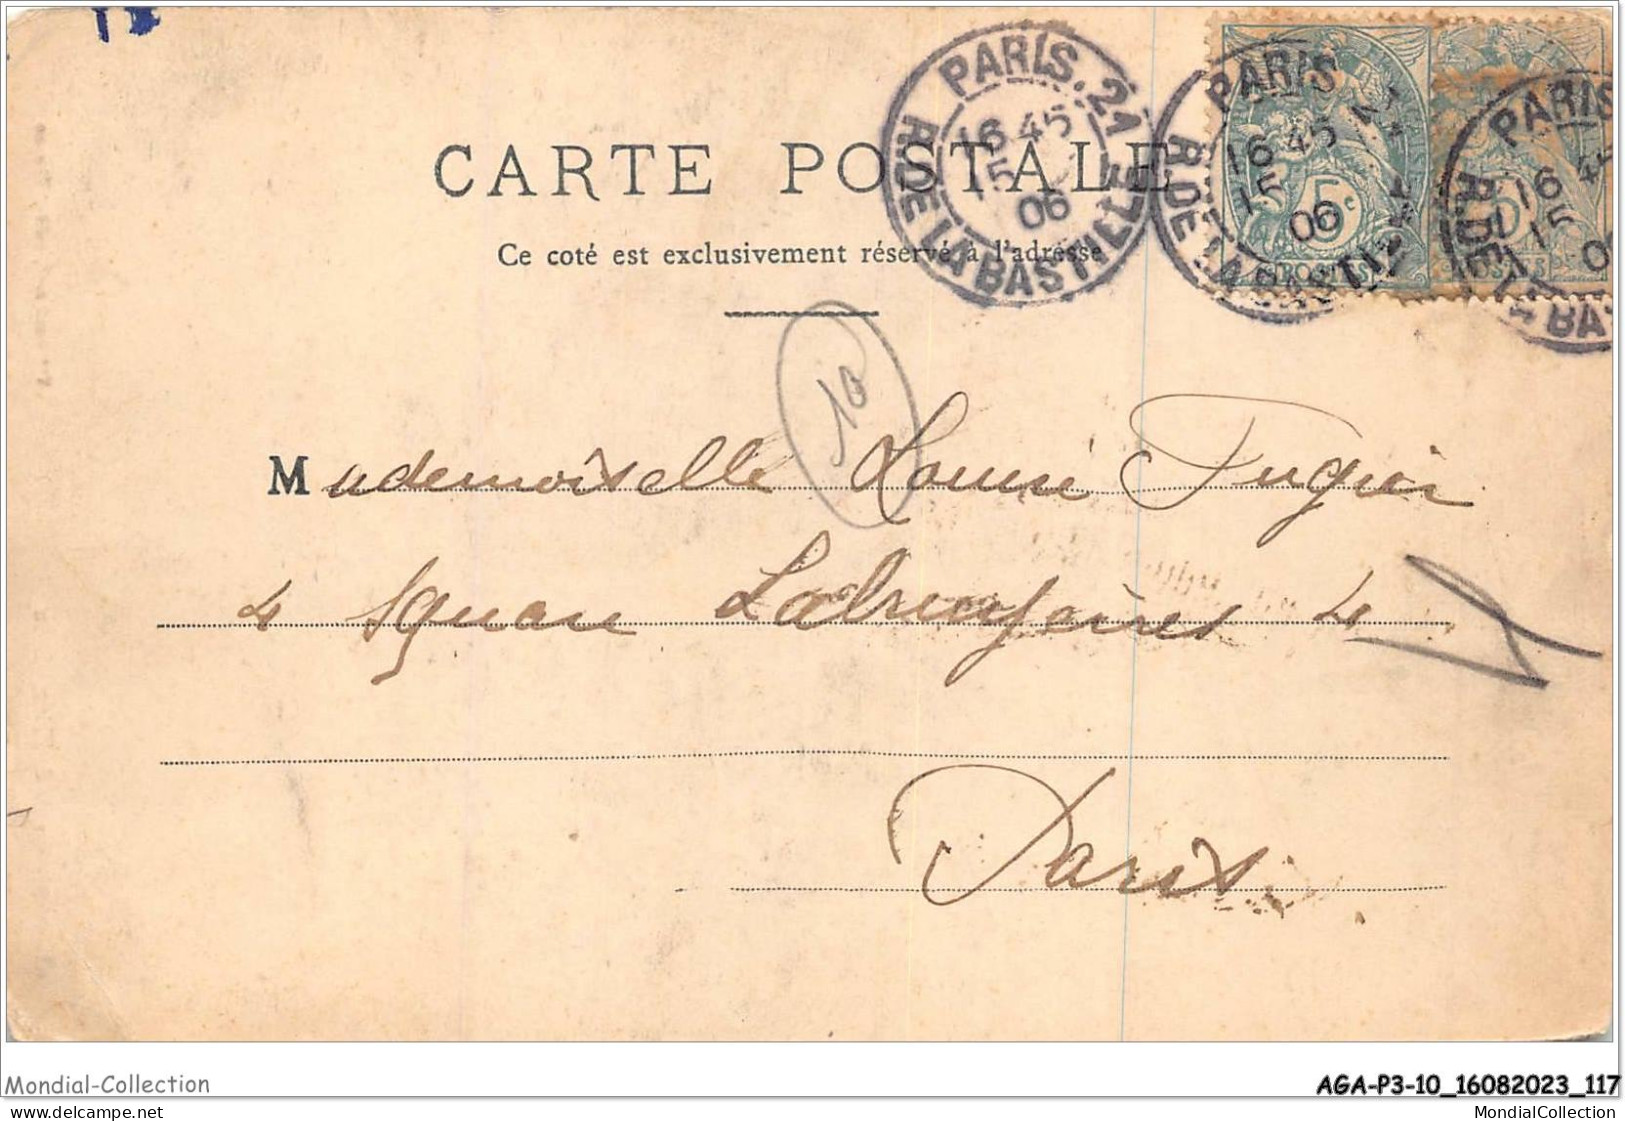 PARIS. 21
16 45
15
06
R. DE LA BASTILLE
PARIS 21
16 45
15
06
R. DE LA BASTILLE
PARIS
16 45
15
R. DE LA BA
5c
POSTES
CARTE POSTALE
Ce coté est exclusivement réservé à l'adresse
10
Mademoiselle Louise
4 Square Labruyère 4
Paris
Mondial-Collection
AGA-P3-10_16082023_117
www.delcampe.net
MondialCollection